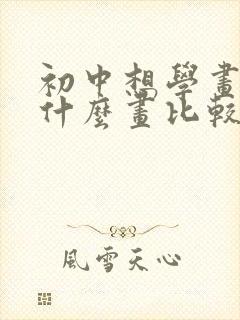 初中想學畫
什麼畫比較
風雪天心